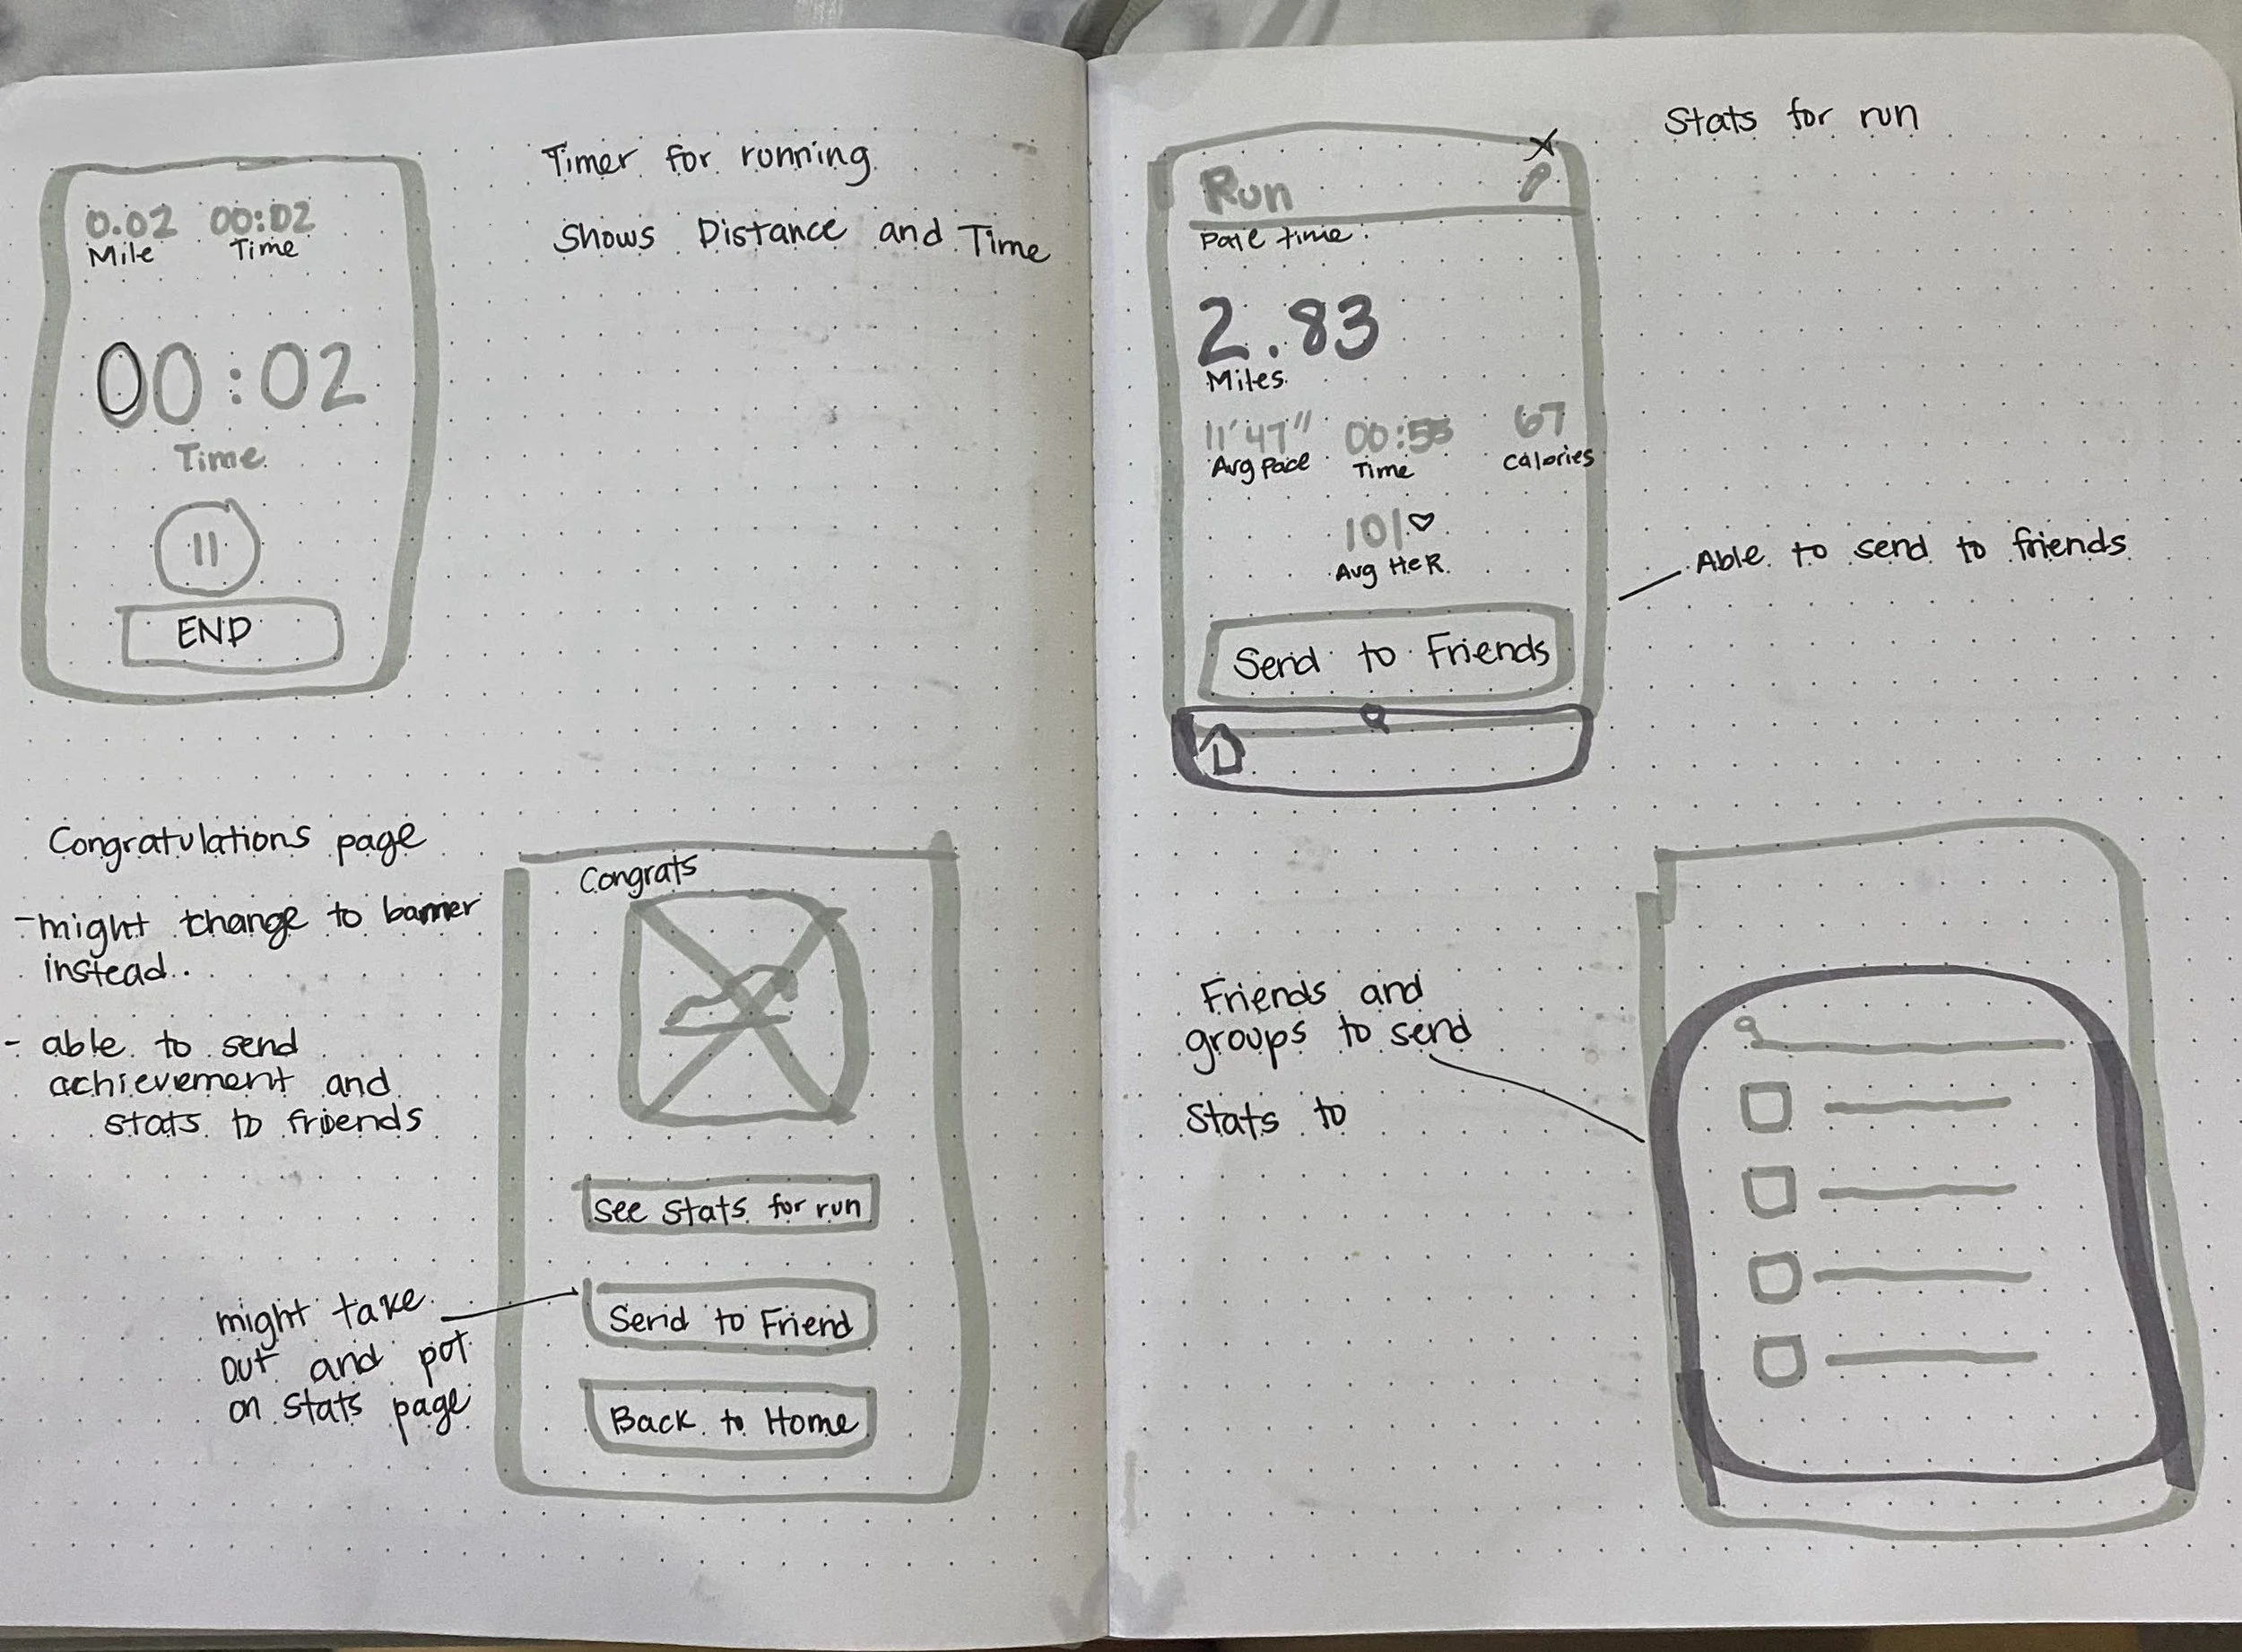 Timer for running
Shows Distance and Time
0.02 00:02
Mile Time
00:02
Time
END
Congratulations page
- might change to banner
instead.
- able to send
achievement and
stats to friends
might take
out and pot
on stats page
Congrats
See stats for run
Send to Friend
Back to Home
Stats for run
X
Run
time:
2.83
Miles
11'47" 00:55 67
Avg Pace Time Calories
101♡
Avg HeR
Send to Friends
Able to send to friends
Friends and
groups to send
Stats to